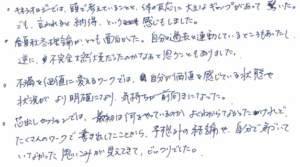 ・キネシオロジーでは、頭で考えていることと、体の反応に大きなギャップがあって驚いた。
でも、言われると納得、という感じもしました。
・春夏秋冬理論がとても面白かった。自分の過去と連動しているところもあったし、
逆に、不安全な状態だったからかなと思うこともありました。
・不満を価値に変えるワークでは、自分が価値を感じている状態や
状況がより明確になり、気持ちが前向きになった。
・セッションでは、最初は何をやっているかよくわからなかったけれど、
たくさんのワークで書き出したことから、予想外の結論や、自分で気づいて
いなかった思いこみが見えてきて、ビックリでした。